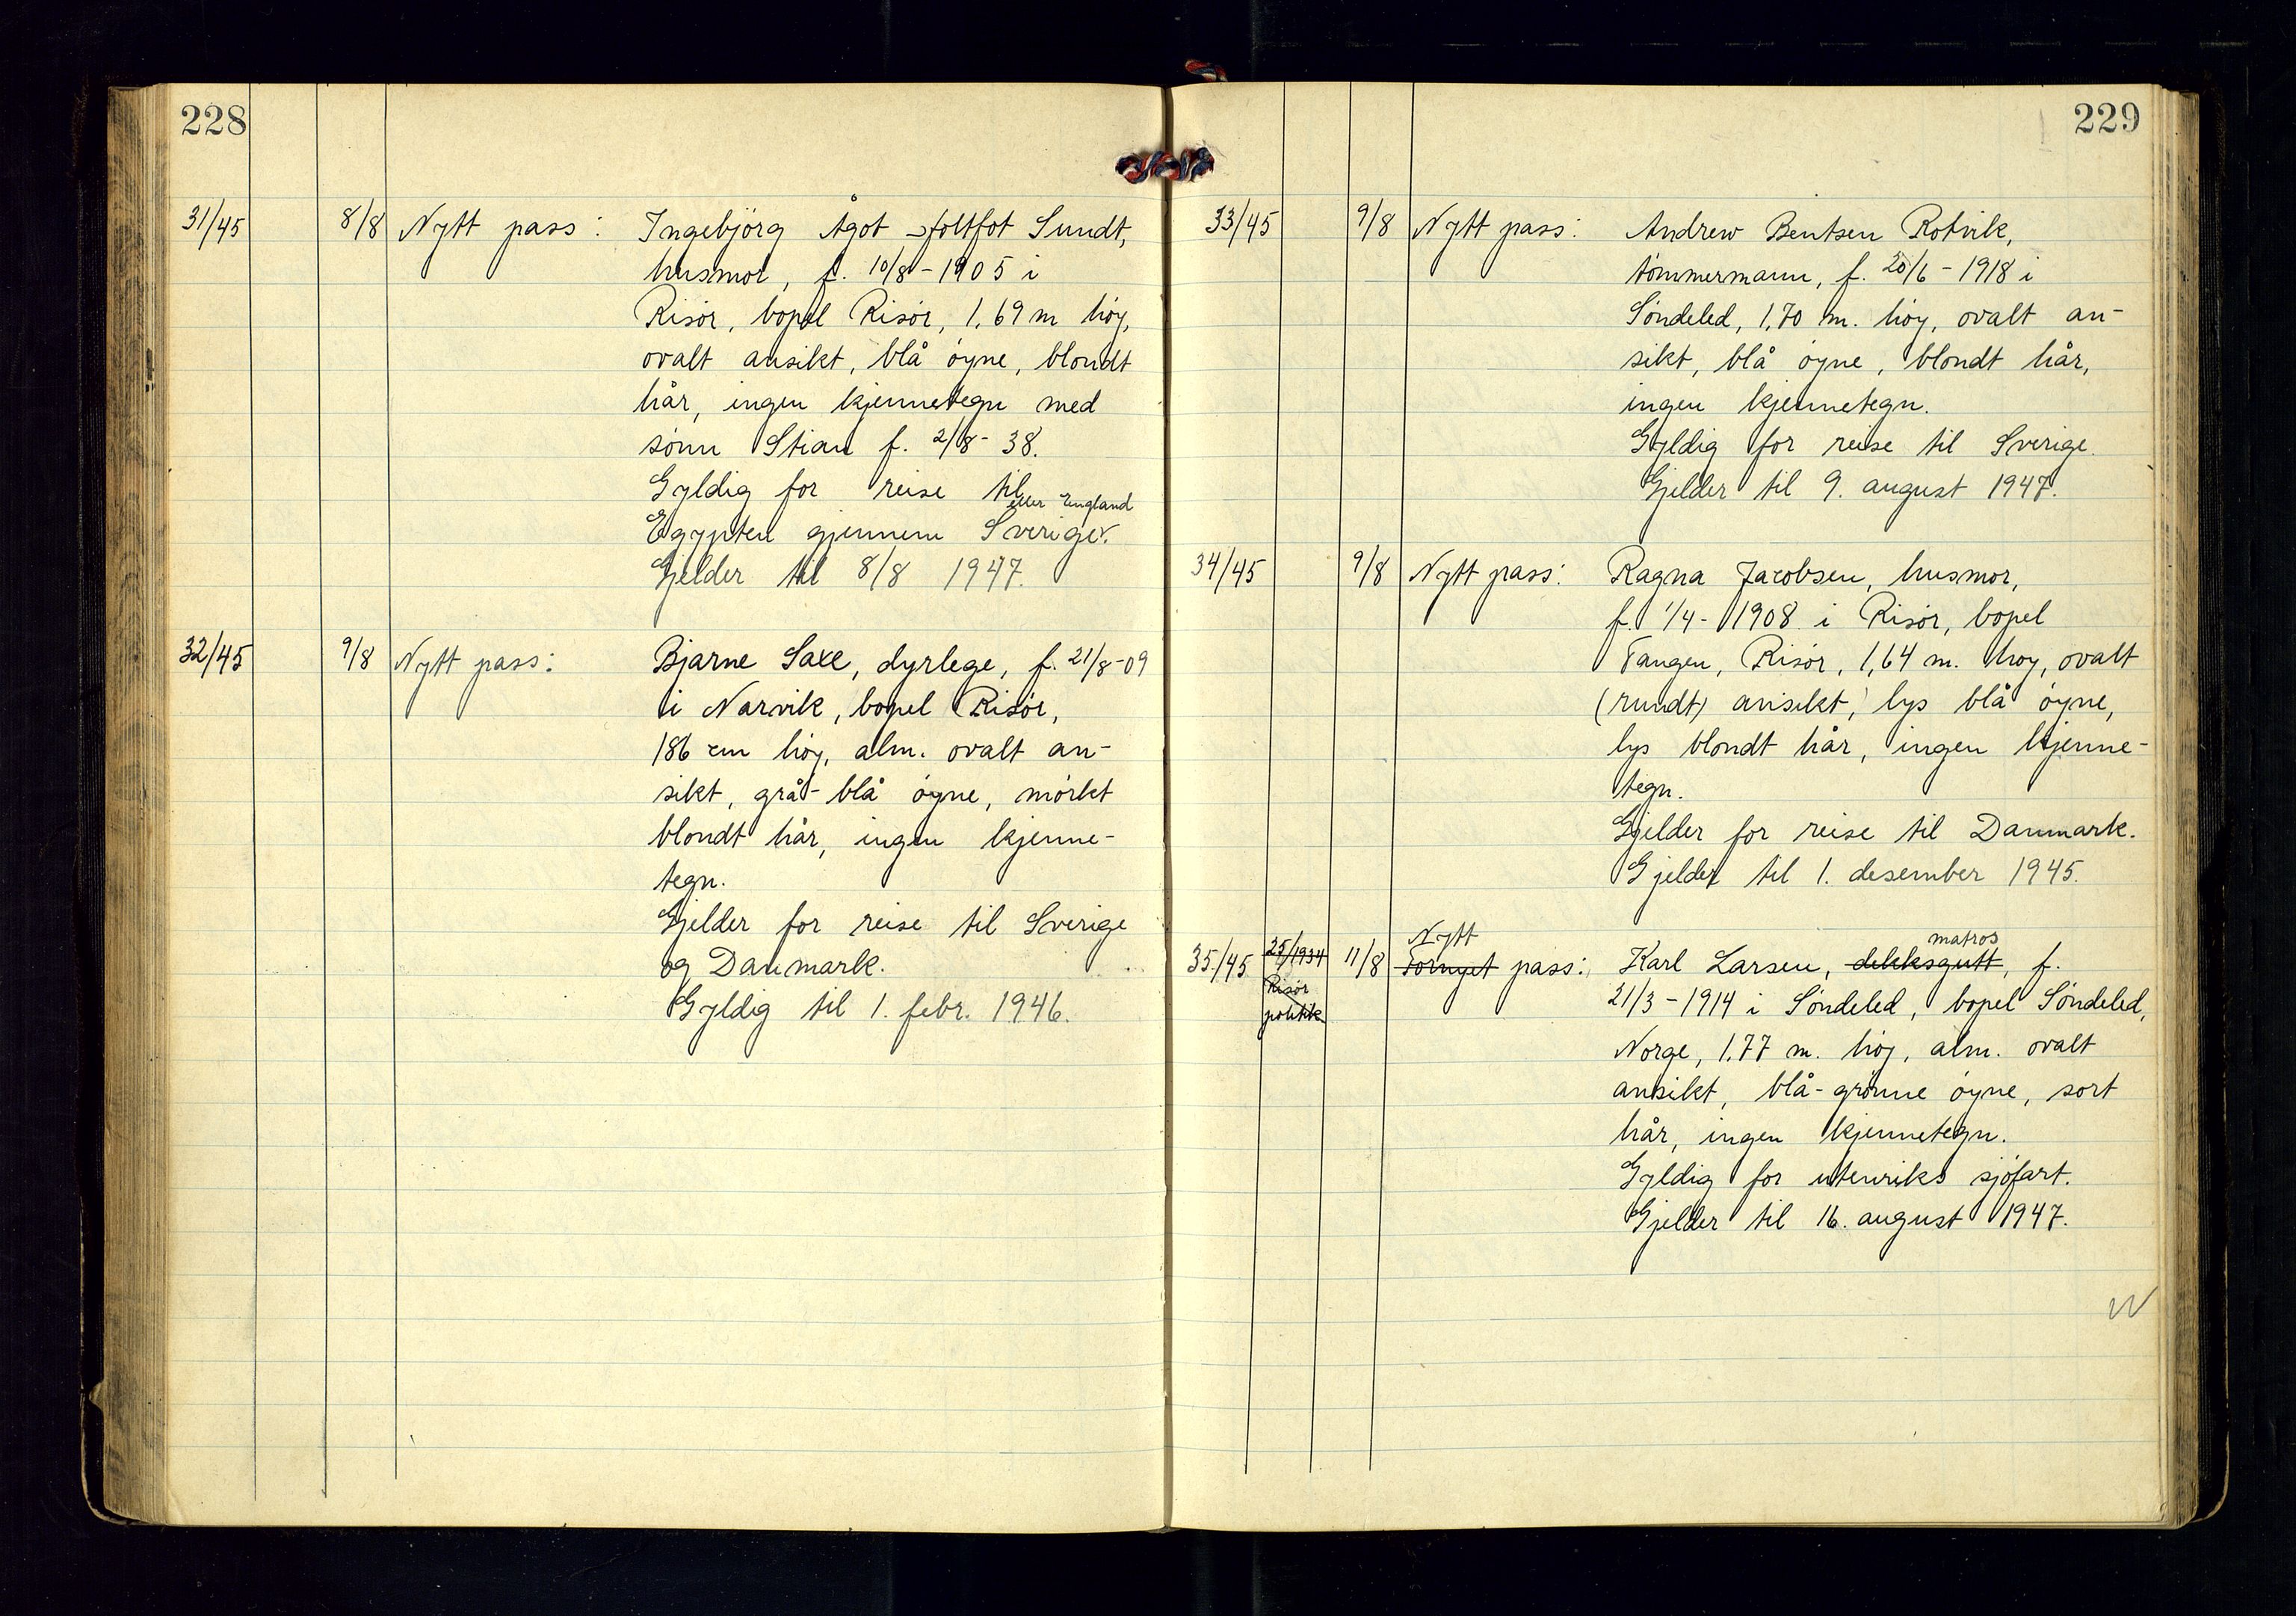 228
31/45 8/8 Nytt pass: Ingebjörg Ågot Sundt,
husmor, f. 10/8 - 1905 i
Risör, bopel Risör, 1,69 m höy,
ovalt ansikt, blå öyne, blondt
hår, ingen kjennetegn med
sönn Stian f. 2/8 - 38.
Gyldig for reise til
eller England
Egypten gjennem Sverige.
Gjelder til 8/8 1947.
32/45 9/8 Nytt pass: Bjarne Saxe, dyrlege, f. 21/8-09
i Narvik, bopel Risör,
186 cm höy, alm. ovalt an-
sikt, grå-blå öyne, mörkt
blondt hår, ingen kjenne-
tegn.
Gjelder for reise til Sverige
og Danmark.
Gyldig til 1. febr. 1946.
229
33/45 9/8 Nytt pass: Andrew Bentsen Rotvik,
tömmermann, f. 20/6 - 1918 i
Söndeled, 1,70 m. höy, ovalt an-
sikt, blå öyne, blondt hår,
ingen kjennetegn.
Gyldig for reise til Sverige.
Gjelder til 9. august 1947.
34/45 9/8 Nytt pass: Ragna Jacobsen, husmor,
f. 1/4 - 1908 i Risör, bopel
Tangen, Risör, 1,64 m. höy, ovalt
(rundt) ansikt, lys blå öyne,
lys blondt hår, ingen kjenne-
tegn.
Gjelder for reise til Danmark.
Gjelder til 1. desember 1945.
Nytt matros
35/45 25/1934 11/8 Fornyet pass: Karl Larsen, dekksgutt, f.
Risör
politik.
21/3 - 1914 i Söndeled, bopel Söndeled,
Norge, 1,77 m. höy, alm. ovalt
ansikt, blå-grönne öyne, sort
hår, ingen kjennetegn.
Gyldig for utenriks sjöfart.
Gjelder til 16. august 1947.